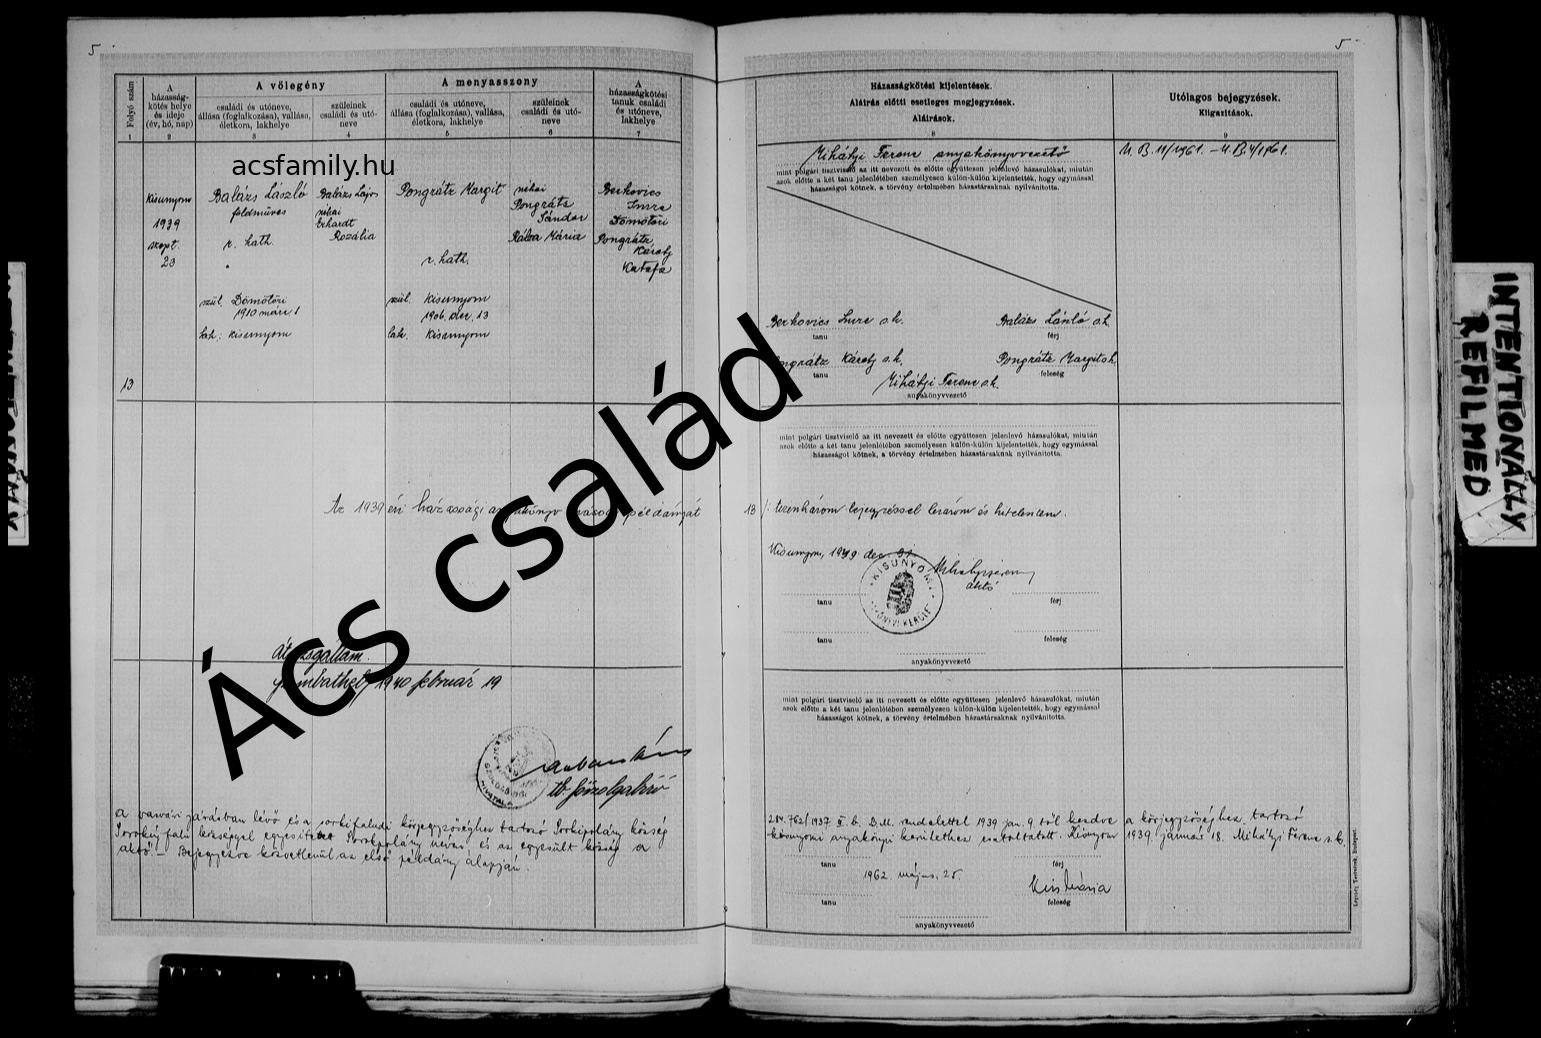 5
5
A vőlegény
A menyasszony
Folyó szám
A
házasság-
kötés helye
és ideje
(év, hó, nap)
családi és utóneve,
állása (foglalkozása), vallása,
életkora, lakhelye
szüleinek
családi és utó-
neve
családi és utóneve,
állása (foglalkozása), vallása,
életkora, lakhelye
szüleinek
családi és utó-
neve
A
házasságkötési
tanuk családi
és utóneve,
lakhelye
1 2 3 4 5 6 7
acsfamily.hu
Kisunyom
1939
szept.
23
Balázs László
földműves
r. kath.
szül. Dömötöri
1910 márc 1
lak: Kisunyom
Balázs Lajos
néhai
Erhardt
Rozália
Pongrátz Margit
r. kath.
szül. Kisunyom
1906. dec. 13
lak. Kisunyom
néhai
Pongrátz
Sándor
Mária
Berkovics
Imre
Dömötöri
Pongrátz
Károly
13
Az 1939 évi házassági
példányát
Ács család
1940 február 19
tb. főszolgabíró
a vasvári járásban lévő és a sorkifaludi körjegyzőséghez tartozó Sorkipolány község
Sorkifalu községgel egyesített Sorkipolány néven, és az egyesült község a
aktő. – Bejegyezve közvetlenül az első példány alapján.
Házasságkötési kijelentések.
Aláírás előtti esetleges megjegyzések.
Aláírások.
8
Utólagos bejegyzések.
Kiigazítások.
9
Mihályi Ferenc anyakönyvvezető
U. B. 11/1961. – U. B. 4/1961.
mint polgári tisztviselő az itt nevezett és előtte együttesen jelenlevő házasulókat, miután
azok előtte a két tanu jelenlétében személyesen külön-külön kijelentették, hogy egymással
házasságot kötnek, a törvény értelmében házastársaknak nyilvánította.
Berkovics Imre s.k.
Balázs László s.k.
tanu
férj
Pongrátz Károly s.k.
Pongrátz Margit s.k.
tanu
feleség
Mihályi Ferenc s.k.
anyakönyvvezető
mint polgári tisztviselő az itt nevezett és előtte együttesen jelenlevő házasulókat, miután
azok előtte a két tanu jelenlétében személyesen külön-külön kijelentették, hogy egymással
házasságot kötnek, a törvény értelmében házastársaknak nyilvánította.
13 /: tizenhárom bejegyzéssel lezárom és hitelesítem.
Kisunyom, 1939 dec. 31.
KISUNYOMI
tanu
férj
tanu
feleség
anyakönyvvezető
mint polgári tisztviselő az itt nevezett és előtte együttesen jelenlevő házasulókat, miután
azok előtte a két tanu jelenlétében személyesen külön-külön kijelentették, hogy egymással
házasságot kötnek, a törvény értelmében házastársaknak nyilvánította.
284.762/1937 B.M. rendelettel 1939 jan. 9 től kezdve a körjegyzőséghez tartozó
kisunyomi anyakönyvi kerülethez csatoltatott. Kisunyom 1939 január 18. Mihályi Ferenc s.k.
tanu
férj
1962. május. 25.
Kiss Mária
tanu
feleség
anyakönyvvezető
INTENTIONALLY
REFILMED